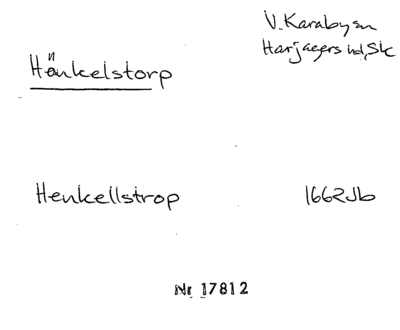 V. Karaby sn
Harjagers hd, Sk
Hänkelstorp
Henkellstrop 1662 Jb
Nr 17812